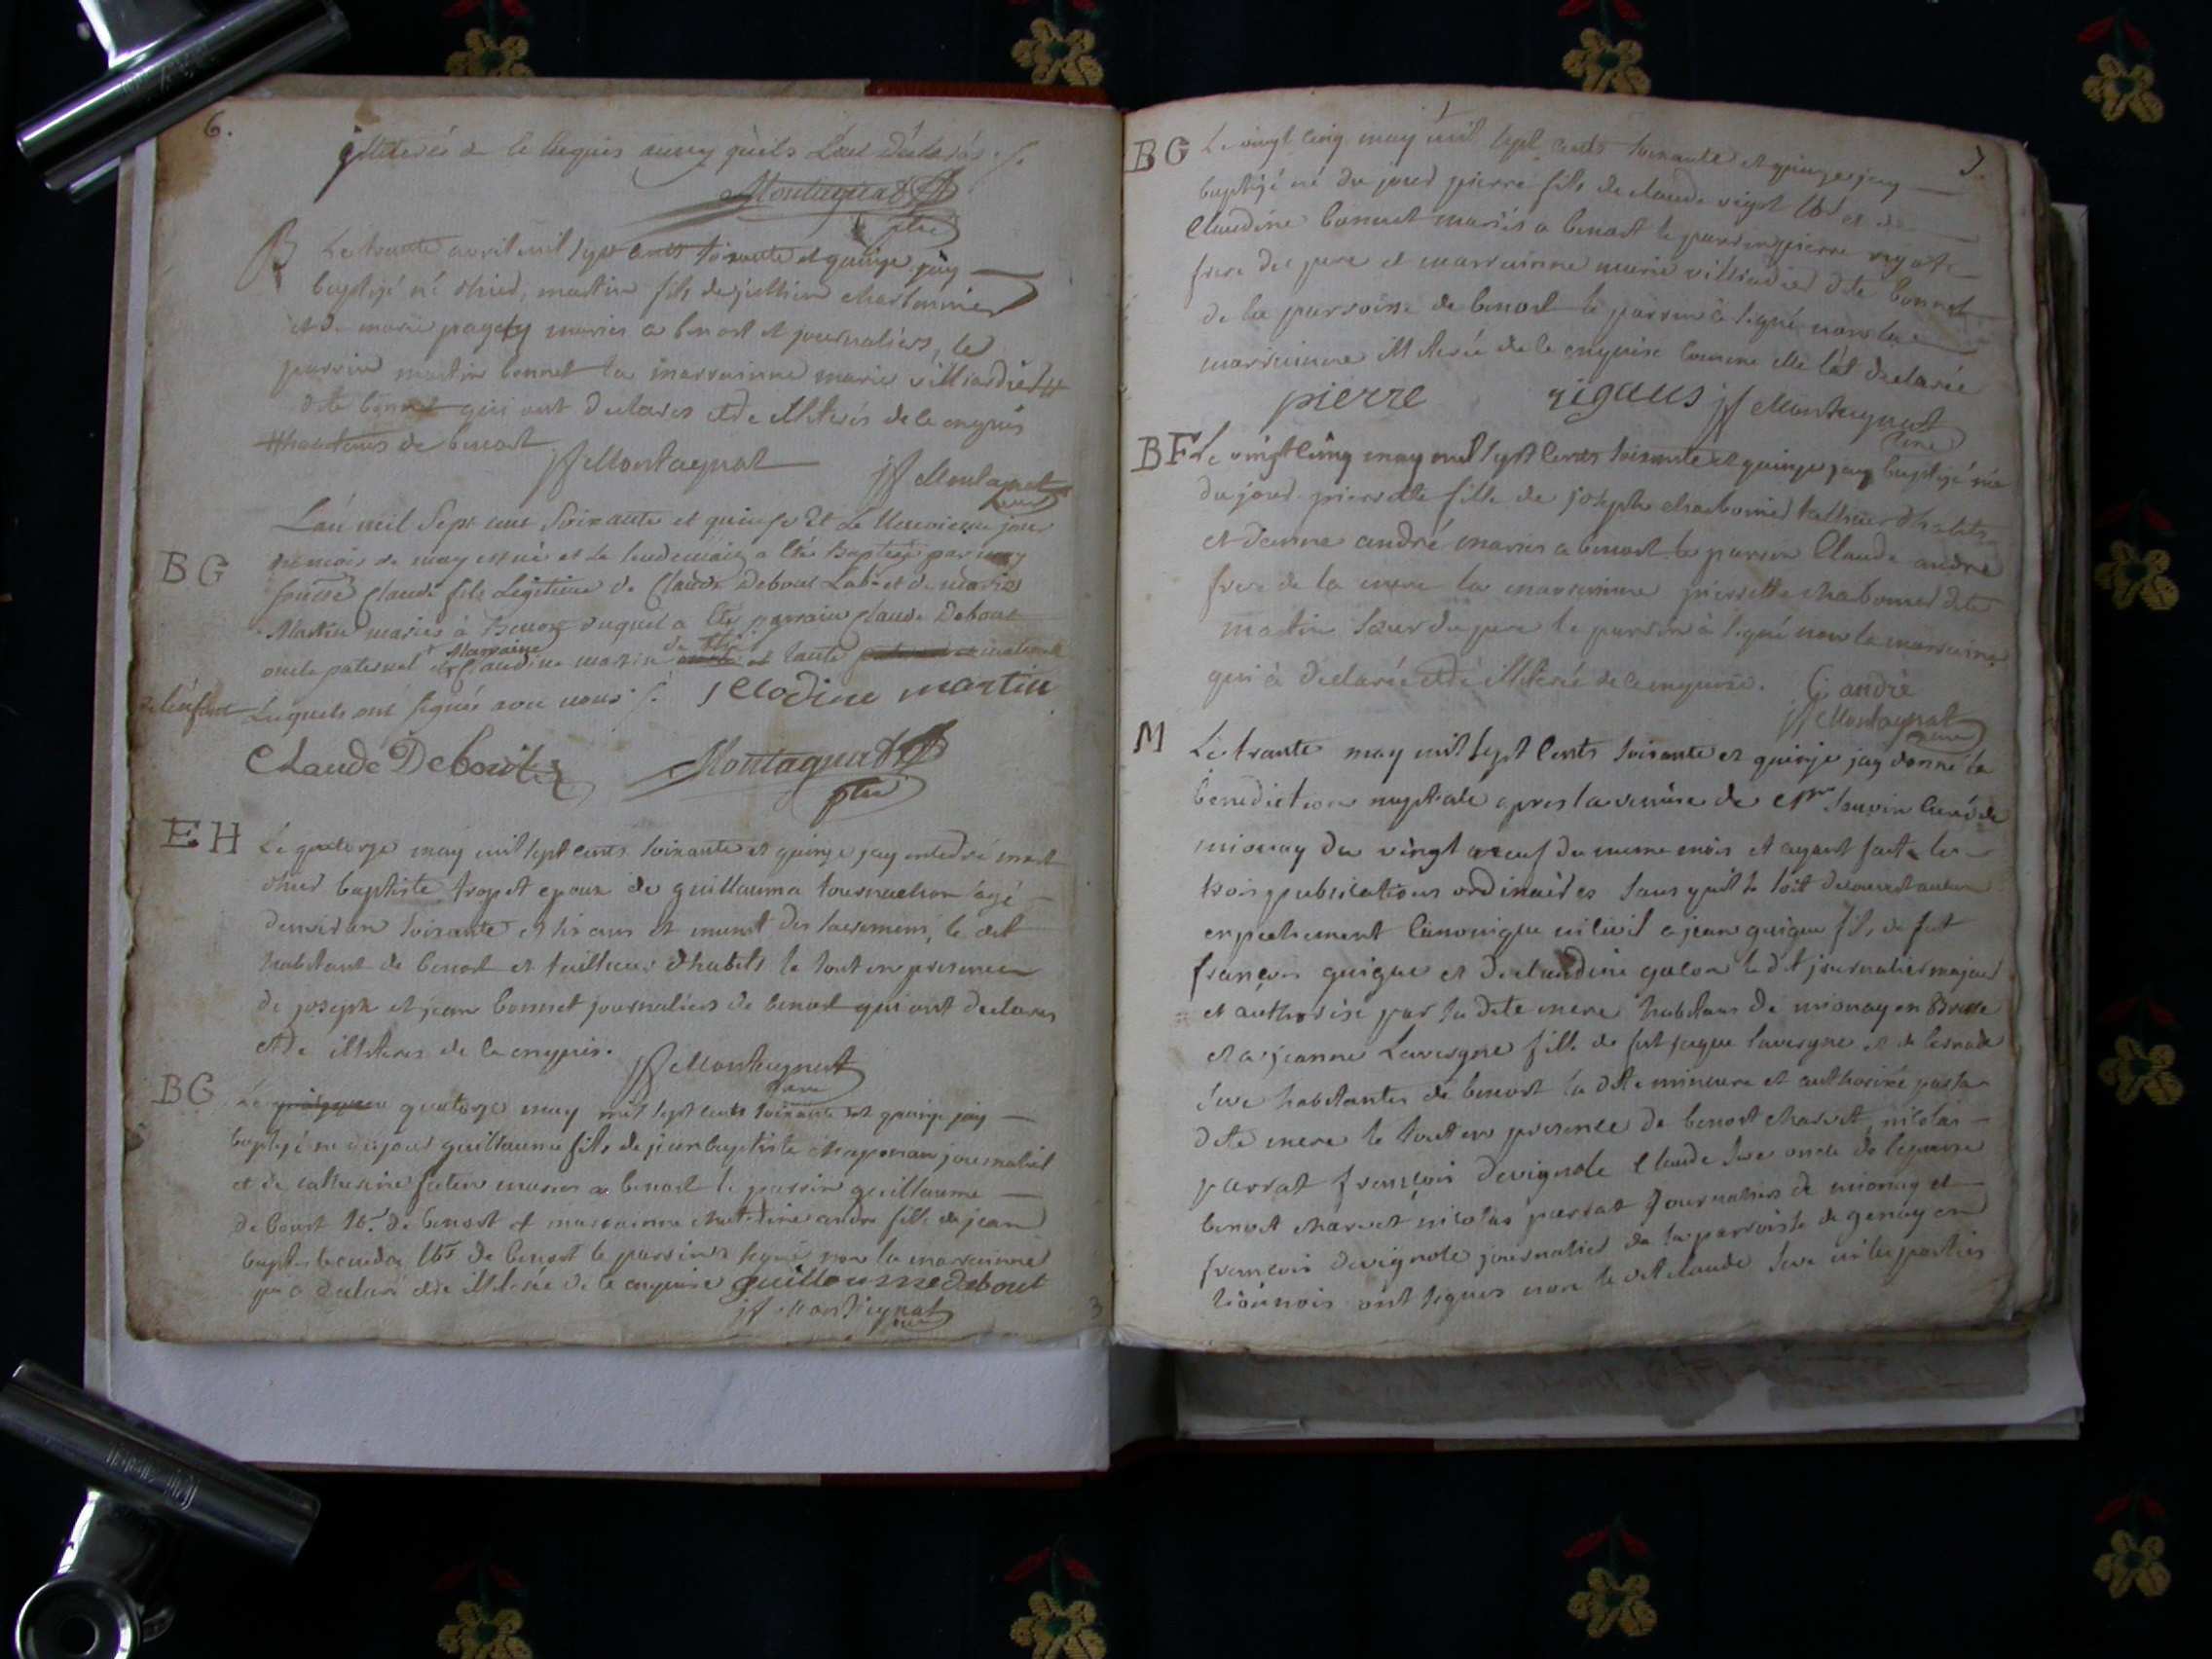 6.
illiterés de ce enquis qu'ils l'ont déclarés ./.
Montagnat
ptre
B
Le trante avril mil sept cents soixante et quinze jay
baptizé né d'hier, martin fils de charbonnier
et de marie mariés a benost et journaliers, le
parrin martin bonnet la marrainne marie villiardier #
dite bonnet qui ont declarés etre illiterés de ce enquis
# habitans de benost
jf Montagnat jf Montagnat
curé
L'an mil sept cent soixante et quinze et le neuvieme jour
BG
du mois de may est né et le lendemain a été baptizé par moy
Claude fils legitime de Claude Debout Lab. et de marie
Martin mariés à Benost duquel a été parrain Claude Debout
oncle paternel et Marraine Claudine martin tante maternelle
de l'enfant Lesquels ont signés avec nous ./. Clodine martin
Claude Debout Montagnat
ptre
EH
Le quatorze may mil sept cents soixante et quinze jay enterré mort
d'hier baptiste tropet epoux de guillauma tournachon agé
denviron soixante et six ans et munit des sacremens, le dit
habitant de benost et tailleur d'habits le tout en presence
de joseph et jean bonnet journaliers de benost qui ont declarés
etre illiterés de ce enquis.
jf Montagnat
curé
BG
Le quatorze may mil sept cents soixante et quinze jay
baptizé né du jour guillaume fils de jean baptiste chaponau journalier
et de catherine mariés a benost le parrin guillaume
debout lbr. de benost et marrainne andré fille de jean
baptiste andré lbr de benost le parrin a signé non la marrainne
qui a declaré etre illiterée de ce enquise guillaume debout
jf Montagnat
curé
3
7.
BG
Le vingt cinq may mil sept cents soixante et quinze jay
baptizé né du jour pierre fils de claude rigot lbr et de
Claudine bonnet mariés a benost le parrin pierre rigot
frere du pere et marrainne marie villiardier dite bonnet
de la parroisse de benost le parrin à signé non la
marrainne illiterée de ce enquise comme elle l'at declarée
pierre rigaus jf Montagnat
curé
BF
Le vingt cinq may mil sept cents soixante et quinze jay baptizé née
du jour pierrette fille de joseph charbonnier tallieur d'habits
et d'anne andré mariés a benost le parrin Claude andré
frere de la mere la marrainne pierrette chabonier dite
martin soeur du pere le parrin à signé non la marrainne
qui à declarée etre illiterée de ce enquise. C. andré
jf Montagnat
curé
M
Le trante may mil sept cents soixante et quinze jay donné la
benediction nuptiale apres la remise de Mr. Jouvin curé de
mionay du vingt neuf du meme mois et ayant fait les
trois publications ordinaires sans quil se soit decouvert aucun
enpechement canonique ni civil a jean guigue fils de fut
françois guigue et de claudine galon le dit journalier majeur
et authorisé par sa dite mere habitans de mionay en Bresse
et a jeanne Lavergne fille de fut jaque lavergne et de
seve habitantes de benost la dite mineure et authorisée par sa
dite mere le tout en presence de benost charvet, nicolas
parrat françois devignole Claude seve oncle de lepouse
benost charvet nicolas parrat journaliers de mionay et
françois devignole journalier de la parroisse de genay en
lionnois ont signés non le dit claude seve ni les parties